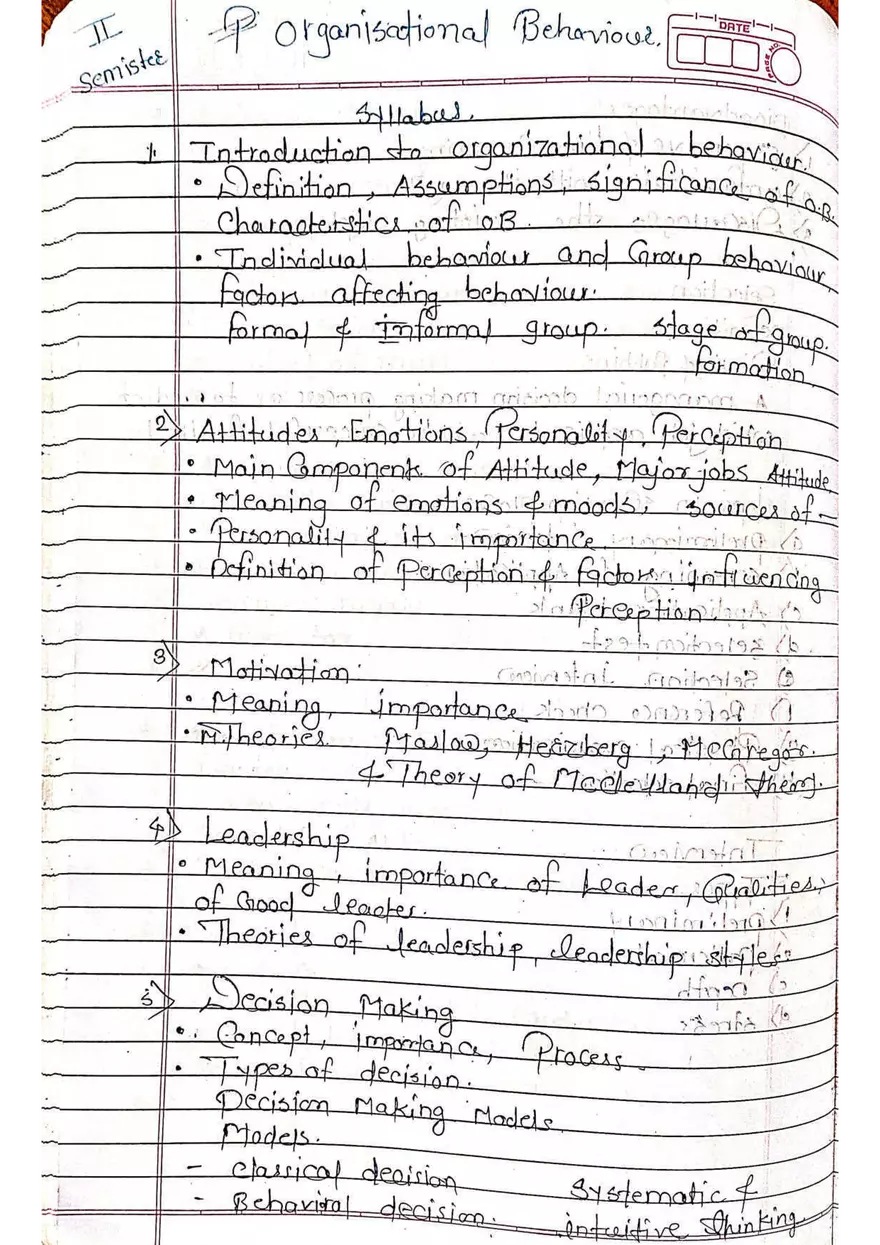 II
Semister
Organisational Behaviour.
DATE
PAGE NO.
Syllabus.
1. Introduction to organizational behaviour.
• Definition, Assumptions, significance of O.B.
Characterstics of OB.
• Individual behaviour and Group behaviour,
factors affecting behaviour.
formal & Informal group. stage of group.
formation.
2) Attitudes, Emotions, Personality, Perception
• Main Components of Attitude, Major jobs Attitude,
• Meaning of emotions & moods, sources of -
• Personality & its importance.
• Definition of Perception & factors influencing
Perception.
3) Motivation
• Meaning, importance
• M.Theories. Maslow, Herzberg, McGregor.
& Theory of Mcclelland theory.
4) Leadership
• Meaning, importance of Leader, Qualities,
of Good leader.
• Theories of leadership, leadership styles
5) Decision Making
• Concept, importance, Process.
• Types of decision.
Decision Making Models.
Models.
- classical decision
Systematic &
- Behaviral decision.
intuitive thinking.